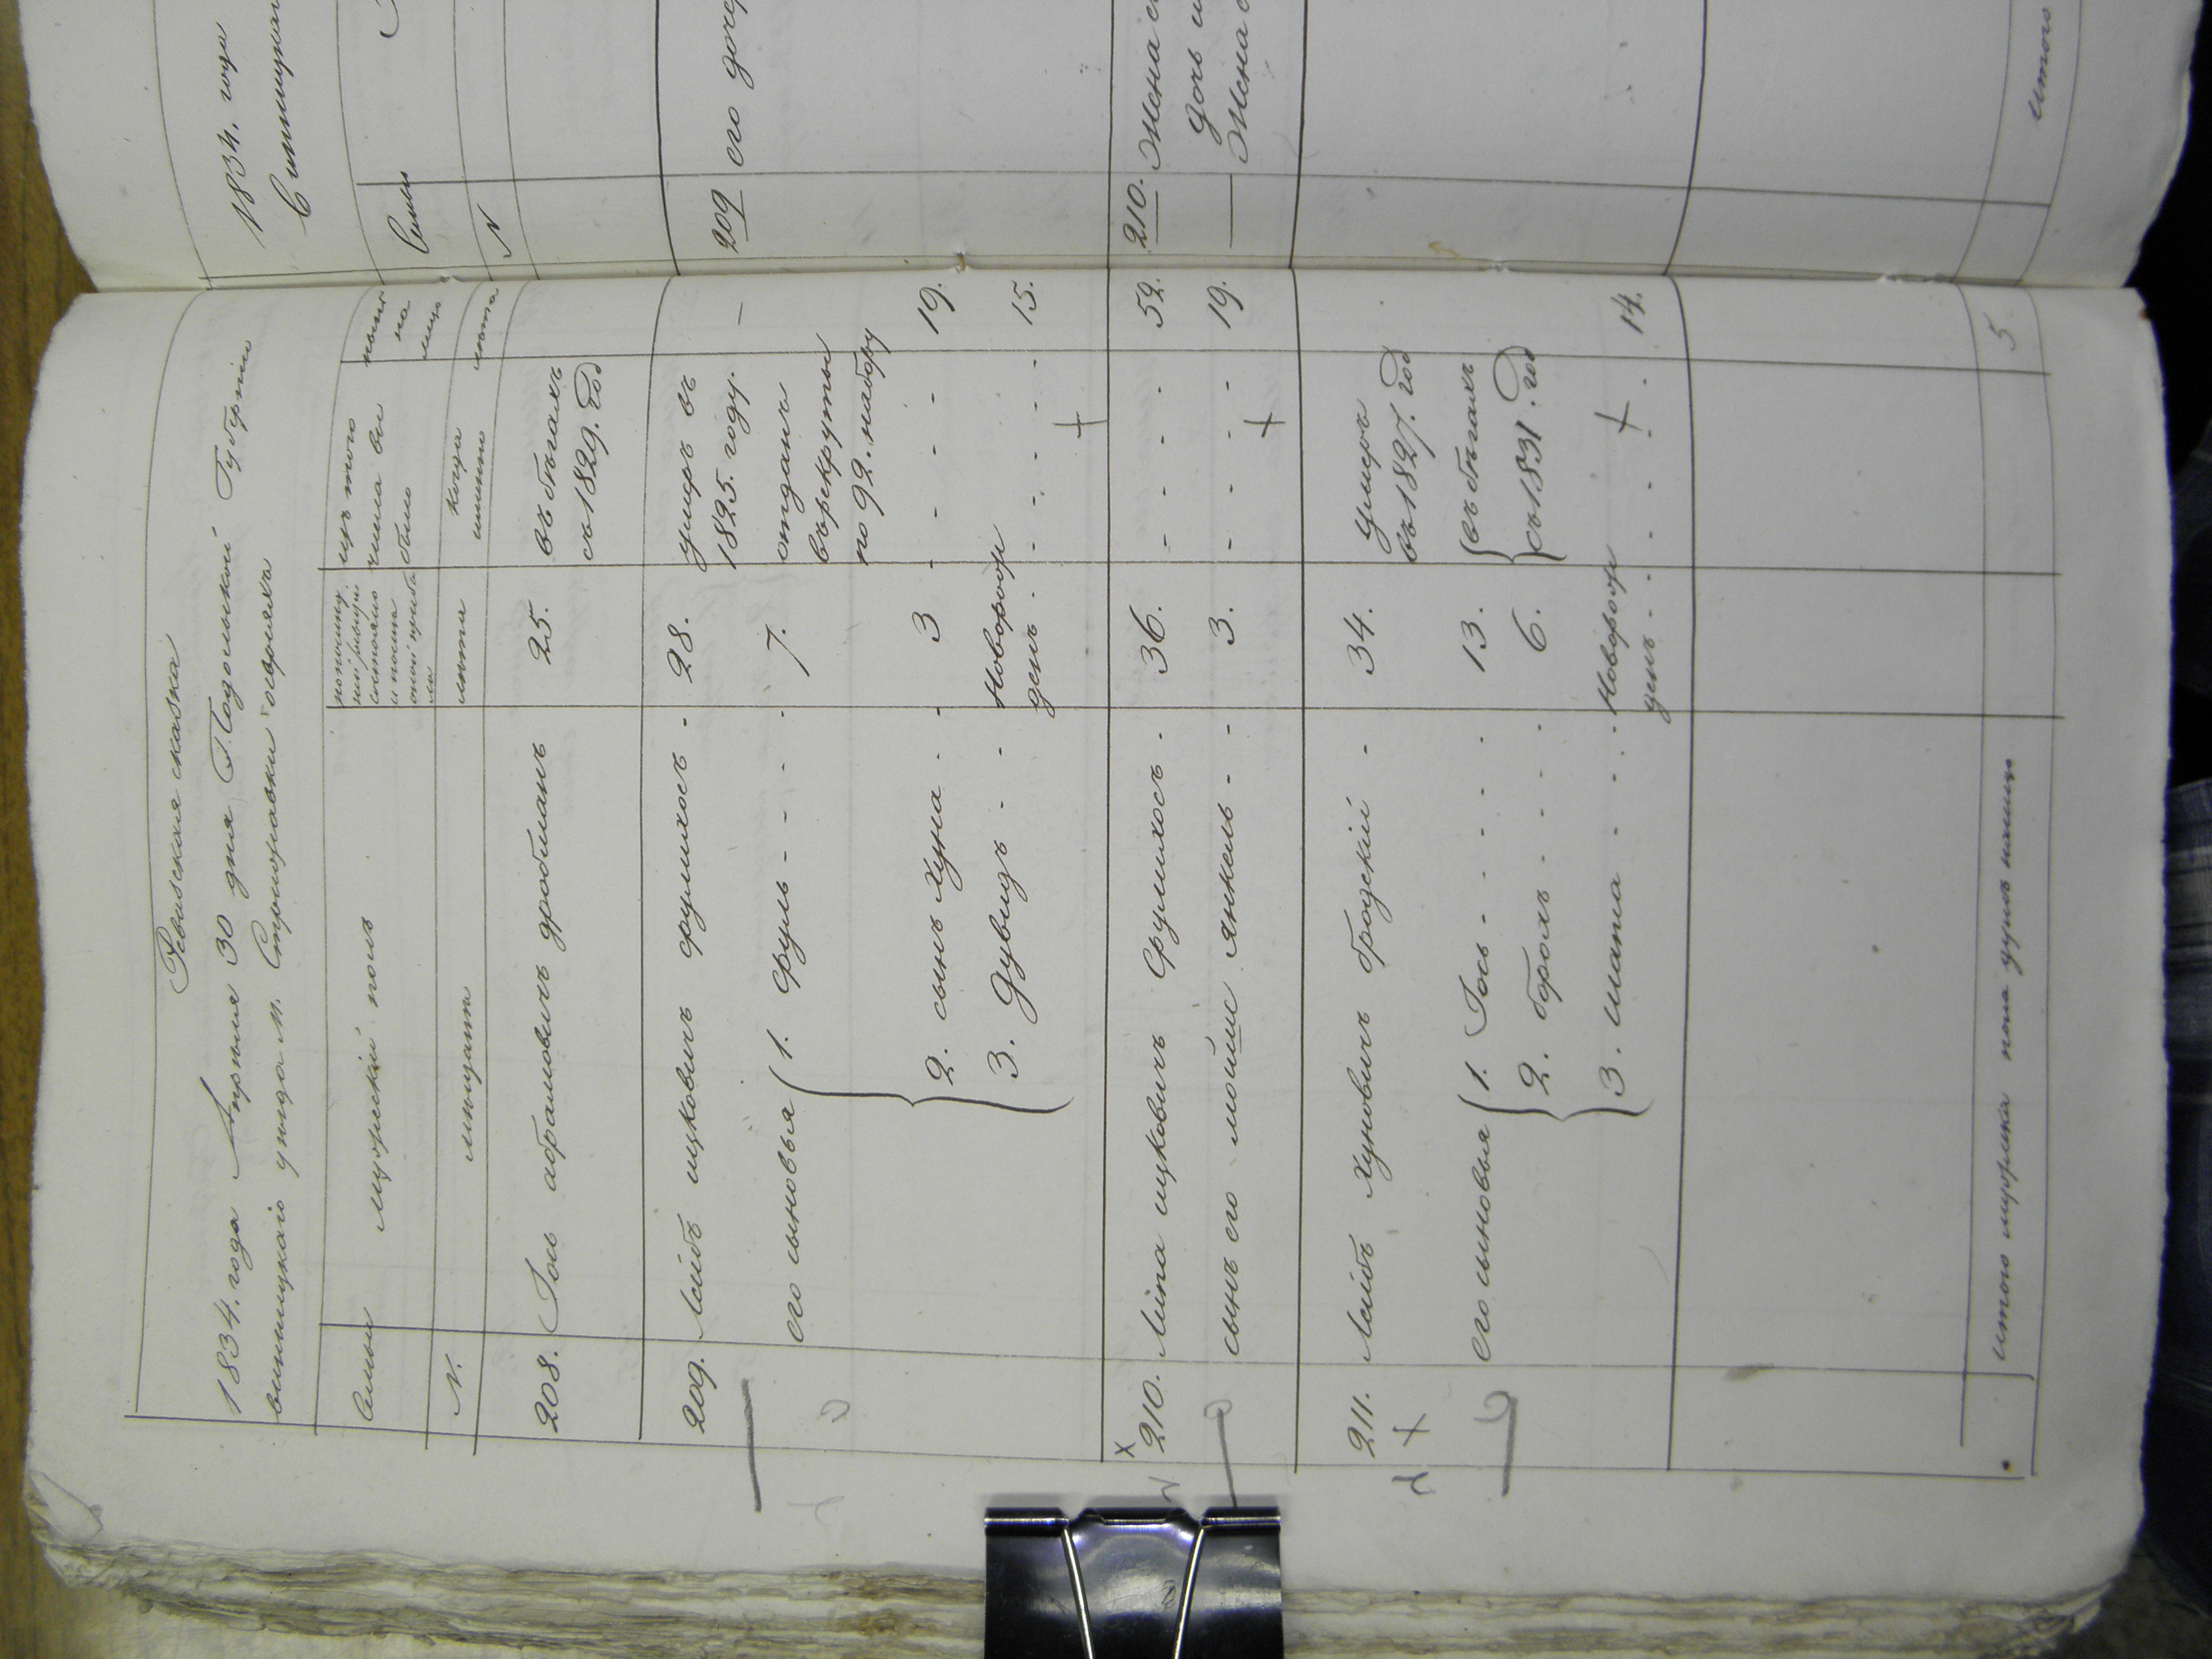 Ревизская сказка
1834. года Апреля 30 дня Подольской Губернии
винницкаго уезда м. Стрижавки оевреяхъ
Семьи
мужский полъ
попослед.
ней ревизии
состояло
и после
оной прибы
ло
изъ того
числа вы
было
ныне
на
лицо
N.
мещане
лета
когда
имянно
лета
208. Іось абрамовичъ дробманъ 25. въ бегахъ
съ 1829. год
209. Лейбъ ицковичъ срулихосъ - 28. умеръ въ
1825. году. —
его сыновья 1. Сруль - - - - 7. отданъ
върекруты
по 92. набору
2. сынъ Хуна - - 3 - - - - 19.
3. Дувидъ - - Новорож
денъ - - - - - 15.
210. Липа ицковичъ Срулихосъ - 36. - - - - 52.
сынъ его мойше янкель - - 3. - - - - 19.
211. Лейбъ Хуновичъ бродский - 34. Умеръ
въ 1827. год
его сыновья 1. Іось - - - - - 13. въ бегахъ
2. борохъ - - - - 6. съ 1831. год
3. шапа - - - Новорож
денъ - - - - - 14.
итого мужска пола душъ налицо 5
1834. года
Винницкаго
Семьи
N
209 его дочер
210. Жена е
дочь и
Жена с
итого